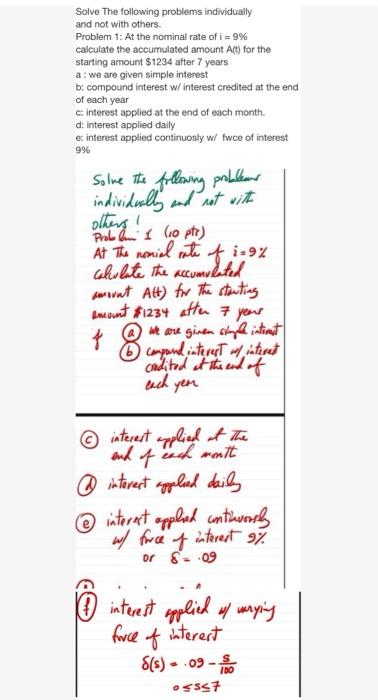 Solve The following problems individually
and not with others.
Problem 1: At the nominal rate of i = 9%
calculate the accumulated amount A(t) for the
starting amount $1234 after 7 years
a : we are given simple interest
b: compound interest w/ interest credited at the end
of each year
c: interest applied at the end of each month.
d: interest applied daily
e: interest applied continuosly w/ fwce of interest
9%
Solve the following problems
individually and not with
others!
Problem 1 (10 pts)
At The nomial rate of i=9%
Calculate the accumulated
amount A(t) for the starting
amount $1234 after 7 years
if (a) we are given simple interest
(b) compound interest w/ interest
credited at the end of
each year
(c) interest applied at the
end of each month
(d) interest applied daily
(e) interest applied continuously
w/ force of interest 9%
or δ = .09
(f) interest applied w/ varying
force of interest
δ(s) = .09 - s/100
0≤s≤7